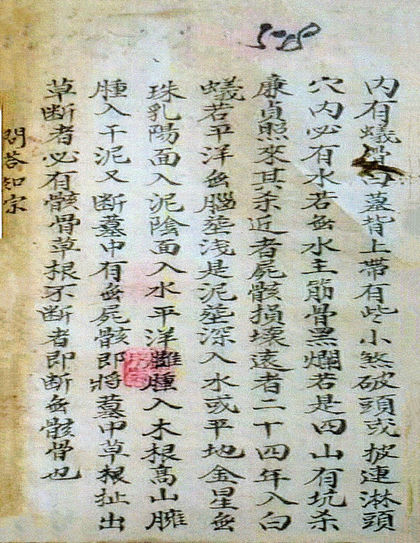 内有蟻墓背上帶有些小煞破頭或披連淋頭
穴内必有水若無水主筋骨黑爛若是四山有坑杀
廉貞照來其年近者屍骸損壞遠者二十四年入白
蟻若平洋無腦塟浅是泥塟深入水或平地金星無
珠乳陽面入泥陰面入水平洋腫入木根高山臃
腫入干泥又断墓中有無屍骸即將墓中草根扯出
草断者必有骸骨草根不断者即断無骸骨也
問荅知宗